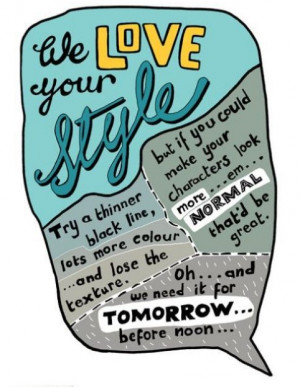 We LOVE
your
Style
but if you could
make your
characters look
more... em...
NORMAL
that'd be
great.
Try a thinner
black line,
lots more colour
...and lose the
texture.
Oh... and
we need it for
TOMORROW...
before noon...